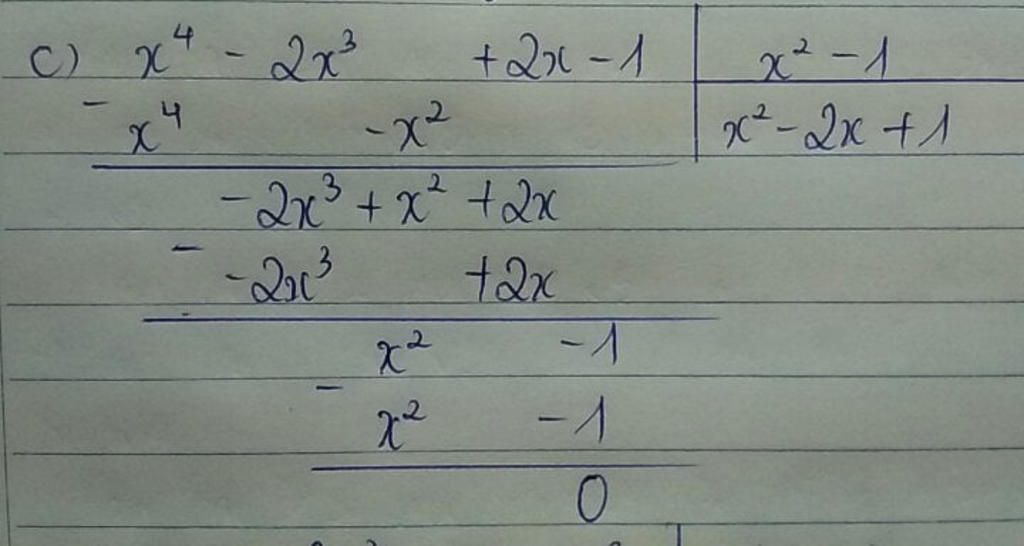 c) x⁴ - 2x³ +2x - 1 | x² - 1
- x⁴ -x² | x² - 2x + 1
-2x³ + x² + 2x
- -2x³ +2x
x² -1
- x² -1
0